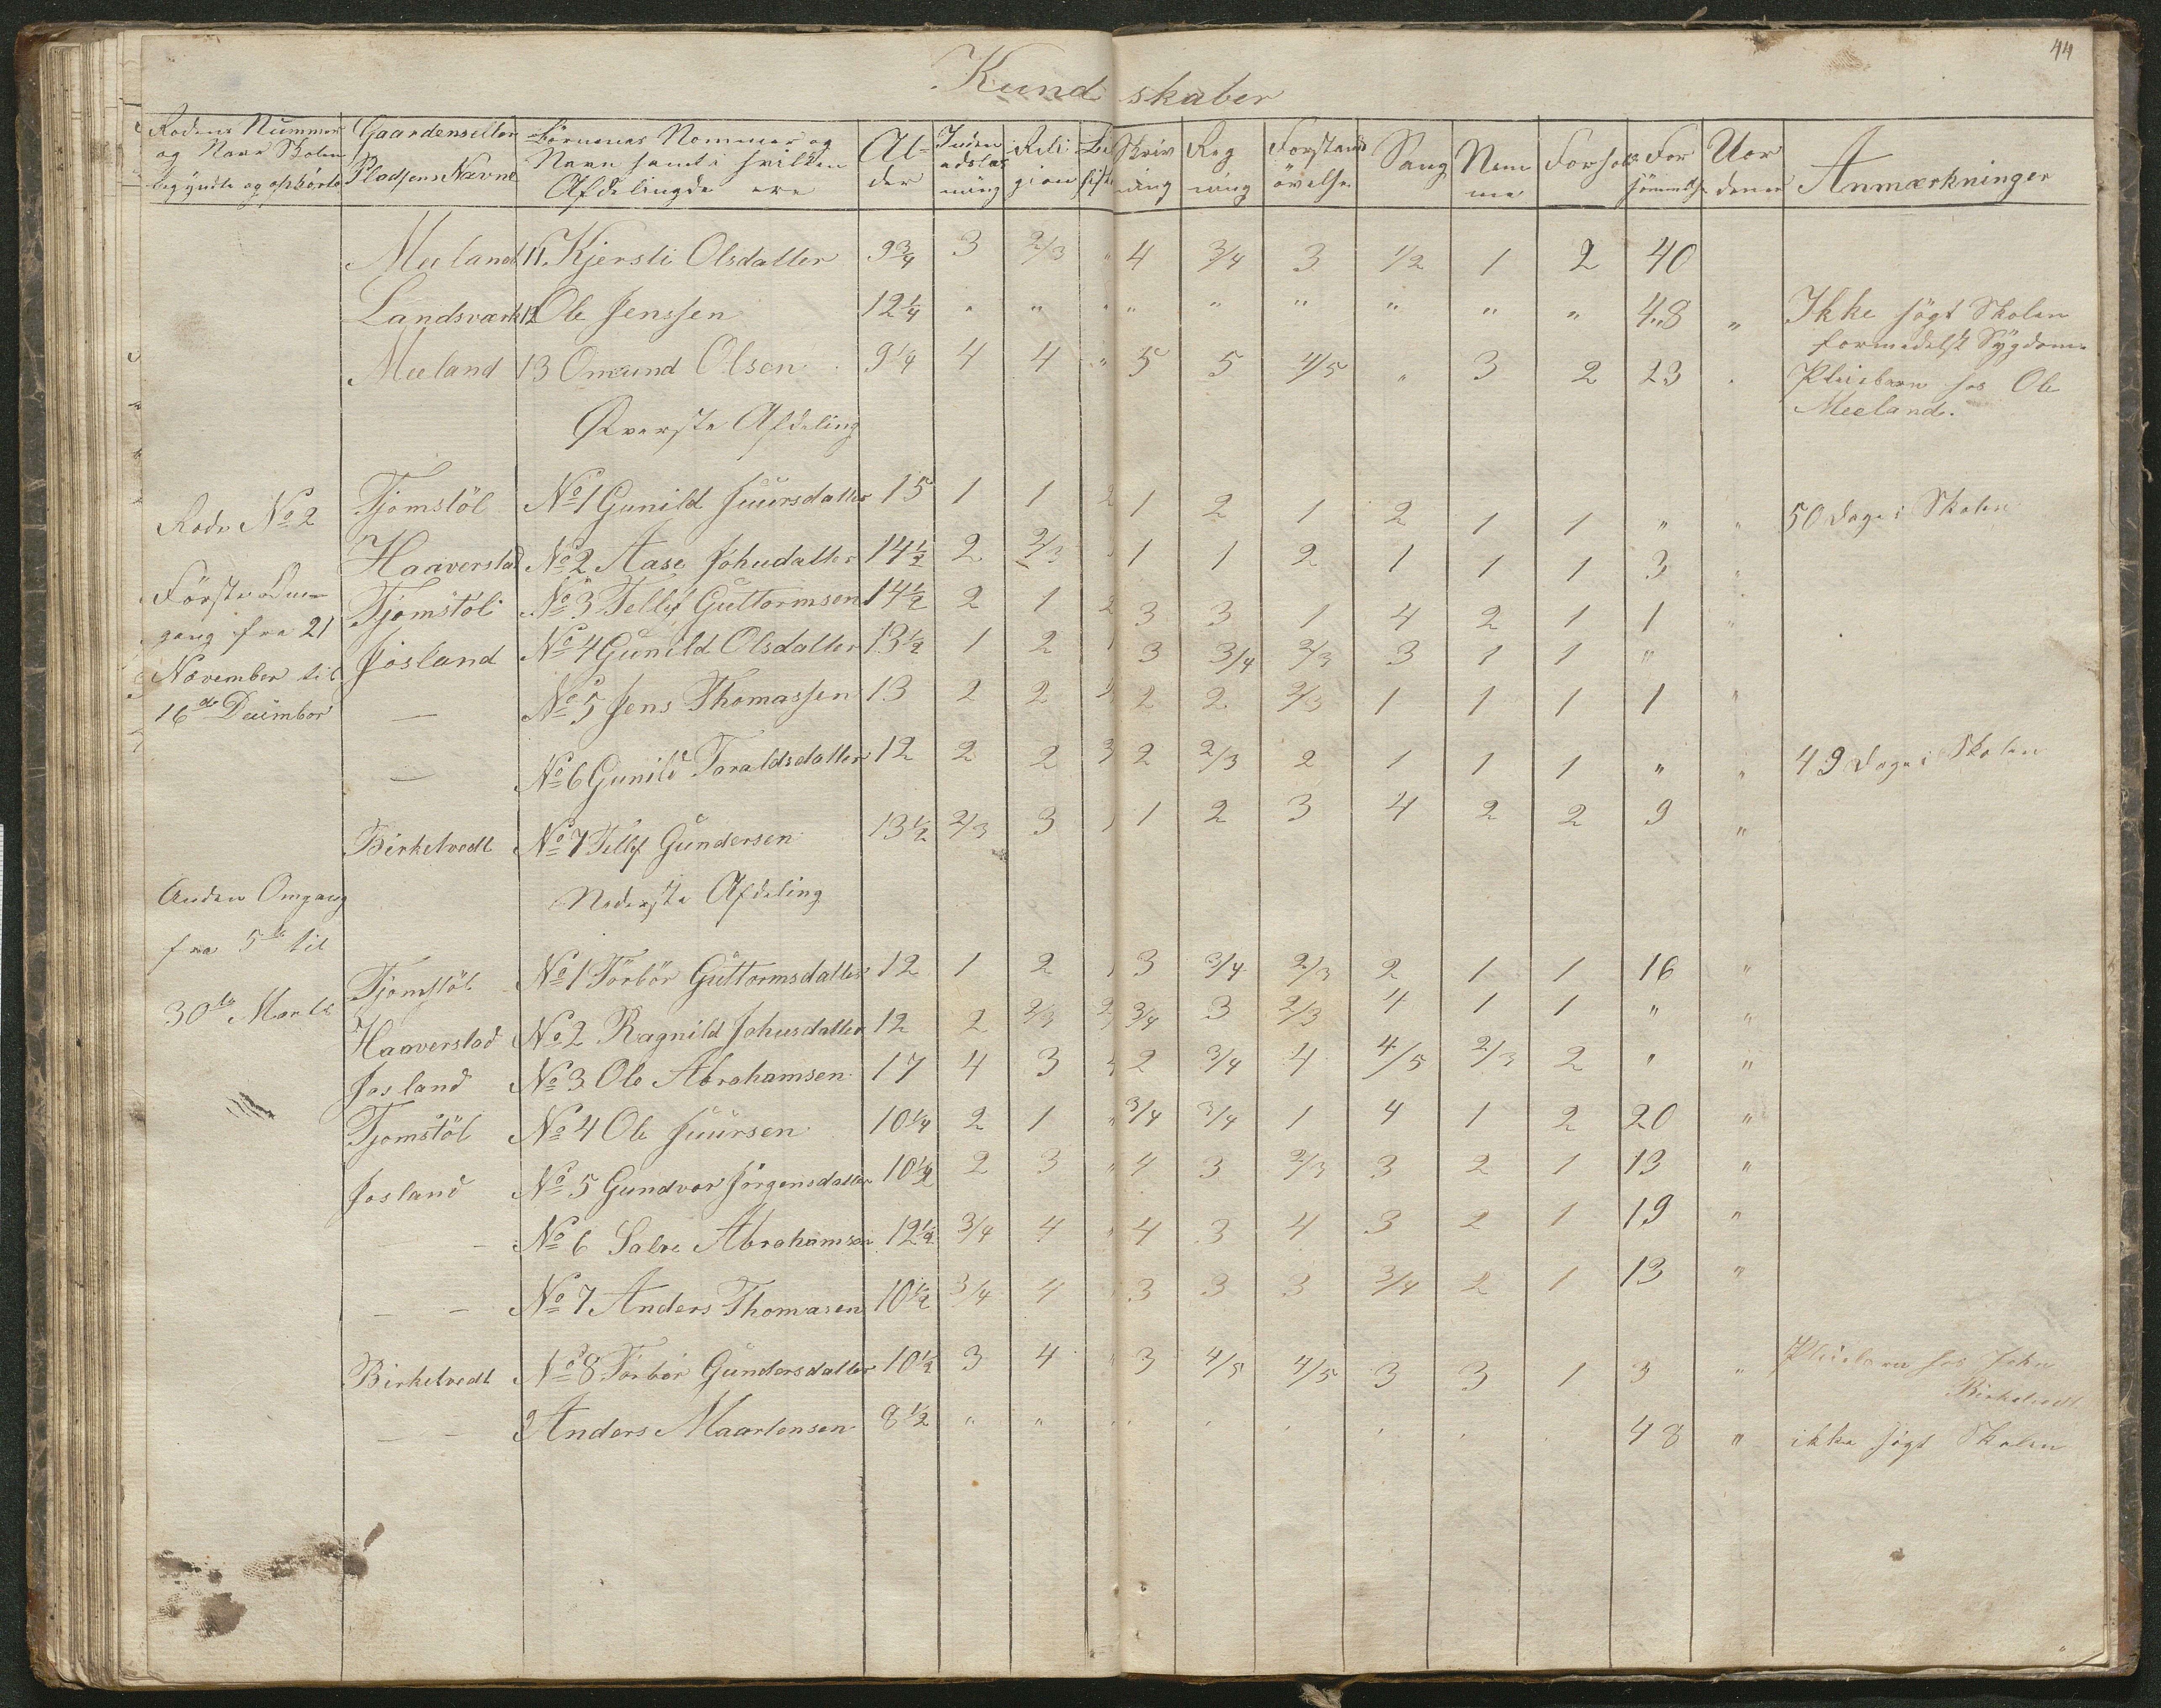 44
Kundskaber
Rodens Nummer og Naar Skolen begyndte og ophörte | Gaardens eller Pladsens Navne | Börnenes Nommer og Navn samt i hvilken Afdeling de ere | Alder | Inden adslæsning | Religion | Skrivning | Regning | Forstands övelse | Sang | Nemme | Forhold | Forsömmelse | Uorden | Anmærkninger
Meeland 11. Kjersti Olsdatter 9 3/4 3 2/3 " 4 3/4 3 1/2 1 2 40
Landsværk 12 Ole Jenssen 12 1/4 " " " " " " " " " 48 " Ikke sögt Skolen formedelst Sygdom
Meeland 13 Omund Olsen 9 1/4 4 4 " 5 5 4/5 " 3 2 23 " Pleiebarn hos Ole Meeland.
Överste Afdeling
Rode No 2 Tjomstöl No 1 Gunild Juursdatter 15 1 1 2 1 2 1 2 1 1 " " 50 Dage i Skolen
Haaverstad No 2 Aase Johnsdatter 14 1/2 2 2/3 1 1 2 1 1 1 3 "
Förste Omgang fra 21 November til 16de Decimber
Tjomstöl No 3 Tellef Guttormsen 14 1/2 2 1 2 3 3 1 4 2 1 1 "
Josland No 4 Gunild Olsdatter 13 1/2 1 2 3 3/4 2/3 3 1 1 "
— No 5 Jens Thomassen 13 2 2 2 2 2/3 1 1 1 1 "
— No 6 Gunild Taraldsdatter 12 2 2 3 2 2/3 2 1 1 1 " " 49 Dage i Skolen
Birketvedt No 7 Tellef Gundersen 13 1/2 2/3 3 1 2 3 4 2 2 9 "
Nederste Afdeling
Anden Omgang fra 5te til 30te Marts
Tjomstöl No 1 Torbör Guttormsdatter 12 1 2 3 3/4 2/3 2 1 1 16 "
Haaverstad No 2 Ragnild Johnsdatter 12 2 2/3 2 3/4 3 2/3 4 1 1 " "
Josland No 3 Ole Abrahamsen 17 4 3 2 3/4 4 4/5 2/3 2 " "
Tjomstöl No 4 Ole Juursen 10 1/4 2 1 " 3/4 3/4 1 4 1 2 20 "
Josland No 5 Gundvor Jörgensdatter 10 1/2 2 3 " 4 3 2/3 3 2 1 13 "
— — No 6 Salve Abrahamsen 12 1/2 3/4 4 " 4 3 4 3 2 1 19 "
— — No 7 Anders Thomasen 10 1/2 3/4 4 3 3 3 3/4 2 1 13 "
Birketvedt No 8 Torbör Gundersdatter 10 1/2 3 4 " 3 4/5 4/5 3 3 1 3 " Pleiebarn hos John Birketvedt
— — 9 Anders Maartensen 8 1/2 " " 48 " ikke sögt Skolen